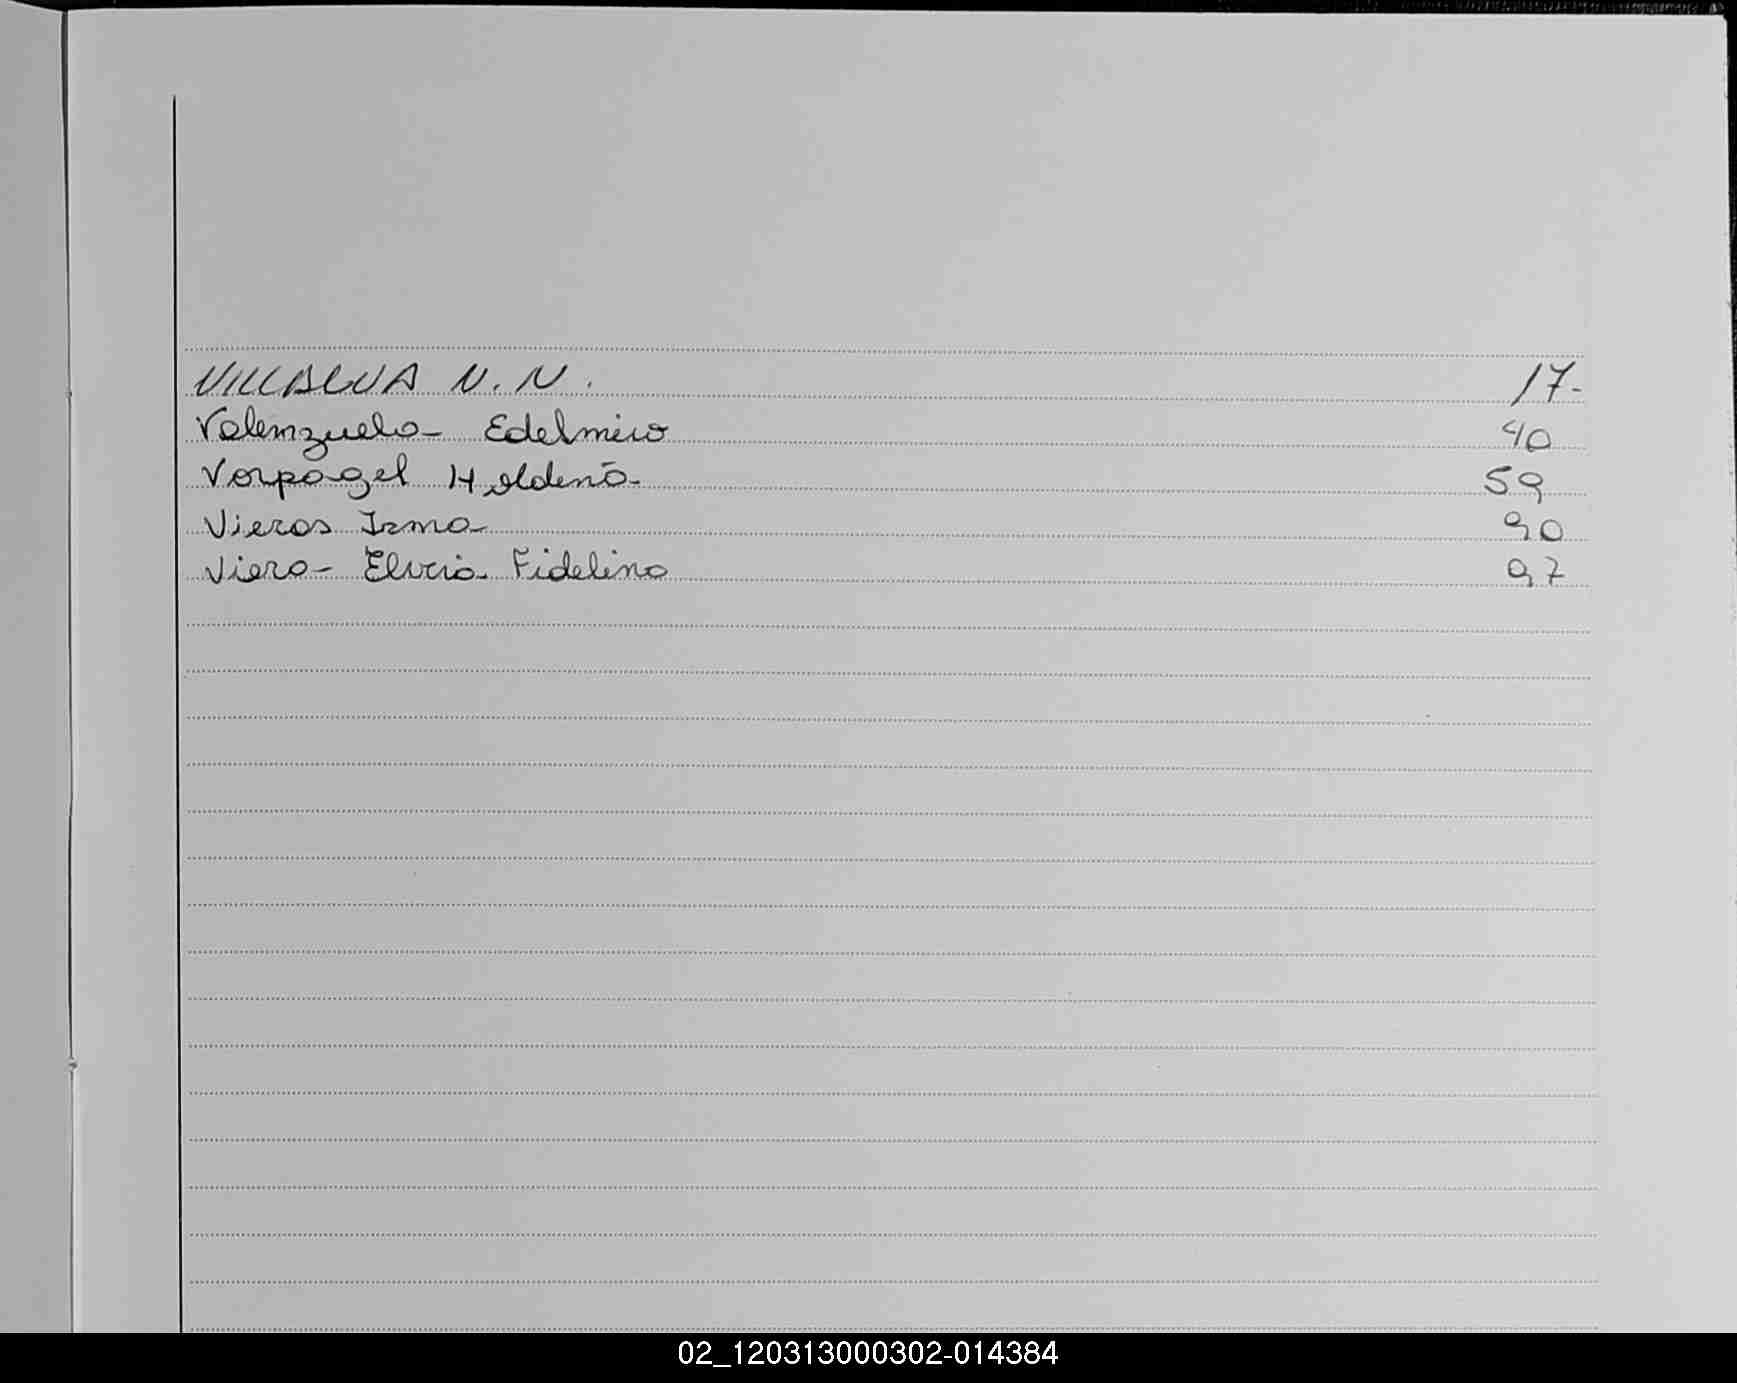 VILLALVA N. N. 17-
Valenzuela Edelmiro 40
Vorpagel Heldena 59
Vieras Irma 90
Viera Elvia Fidelina 97
02_120313000302-014384